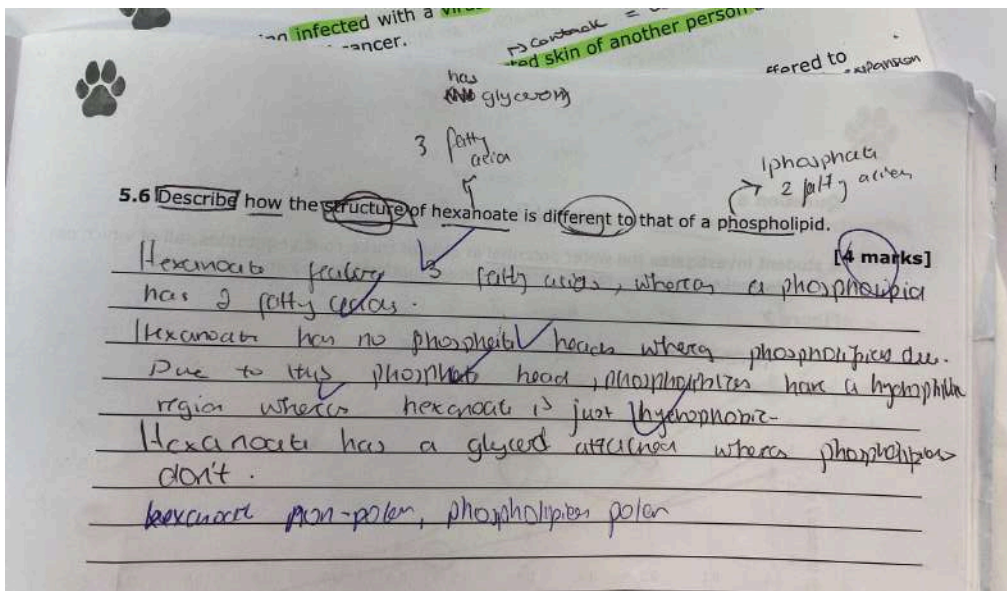 an infected with a virus
cancer.
contact =
ted skin of another person
ffered to
expansion
has
glycerol
3 fatty
acid
1 phosphate
2 fatty acids
5.6 Describe how the structure of hexanoate is different to that of a phospholipid.
[4 marks]
Hexanoate features 3 fatty acids, whereas a phospholipid
has 2 fatty acids.
Hexanoate has no phosphate heads whereas phospholipids do.
Due to this phosphate head, phospholipids have a hydrophilic
region whereas hexanoate is just hydrophobic.
Hexanoate has a glycerol attached whereas phospholipids
don't.
hexanoate non-polar, phospholipids polar